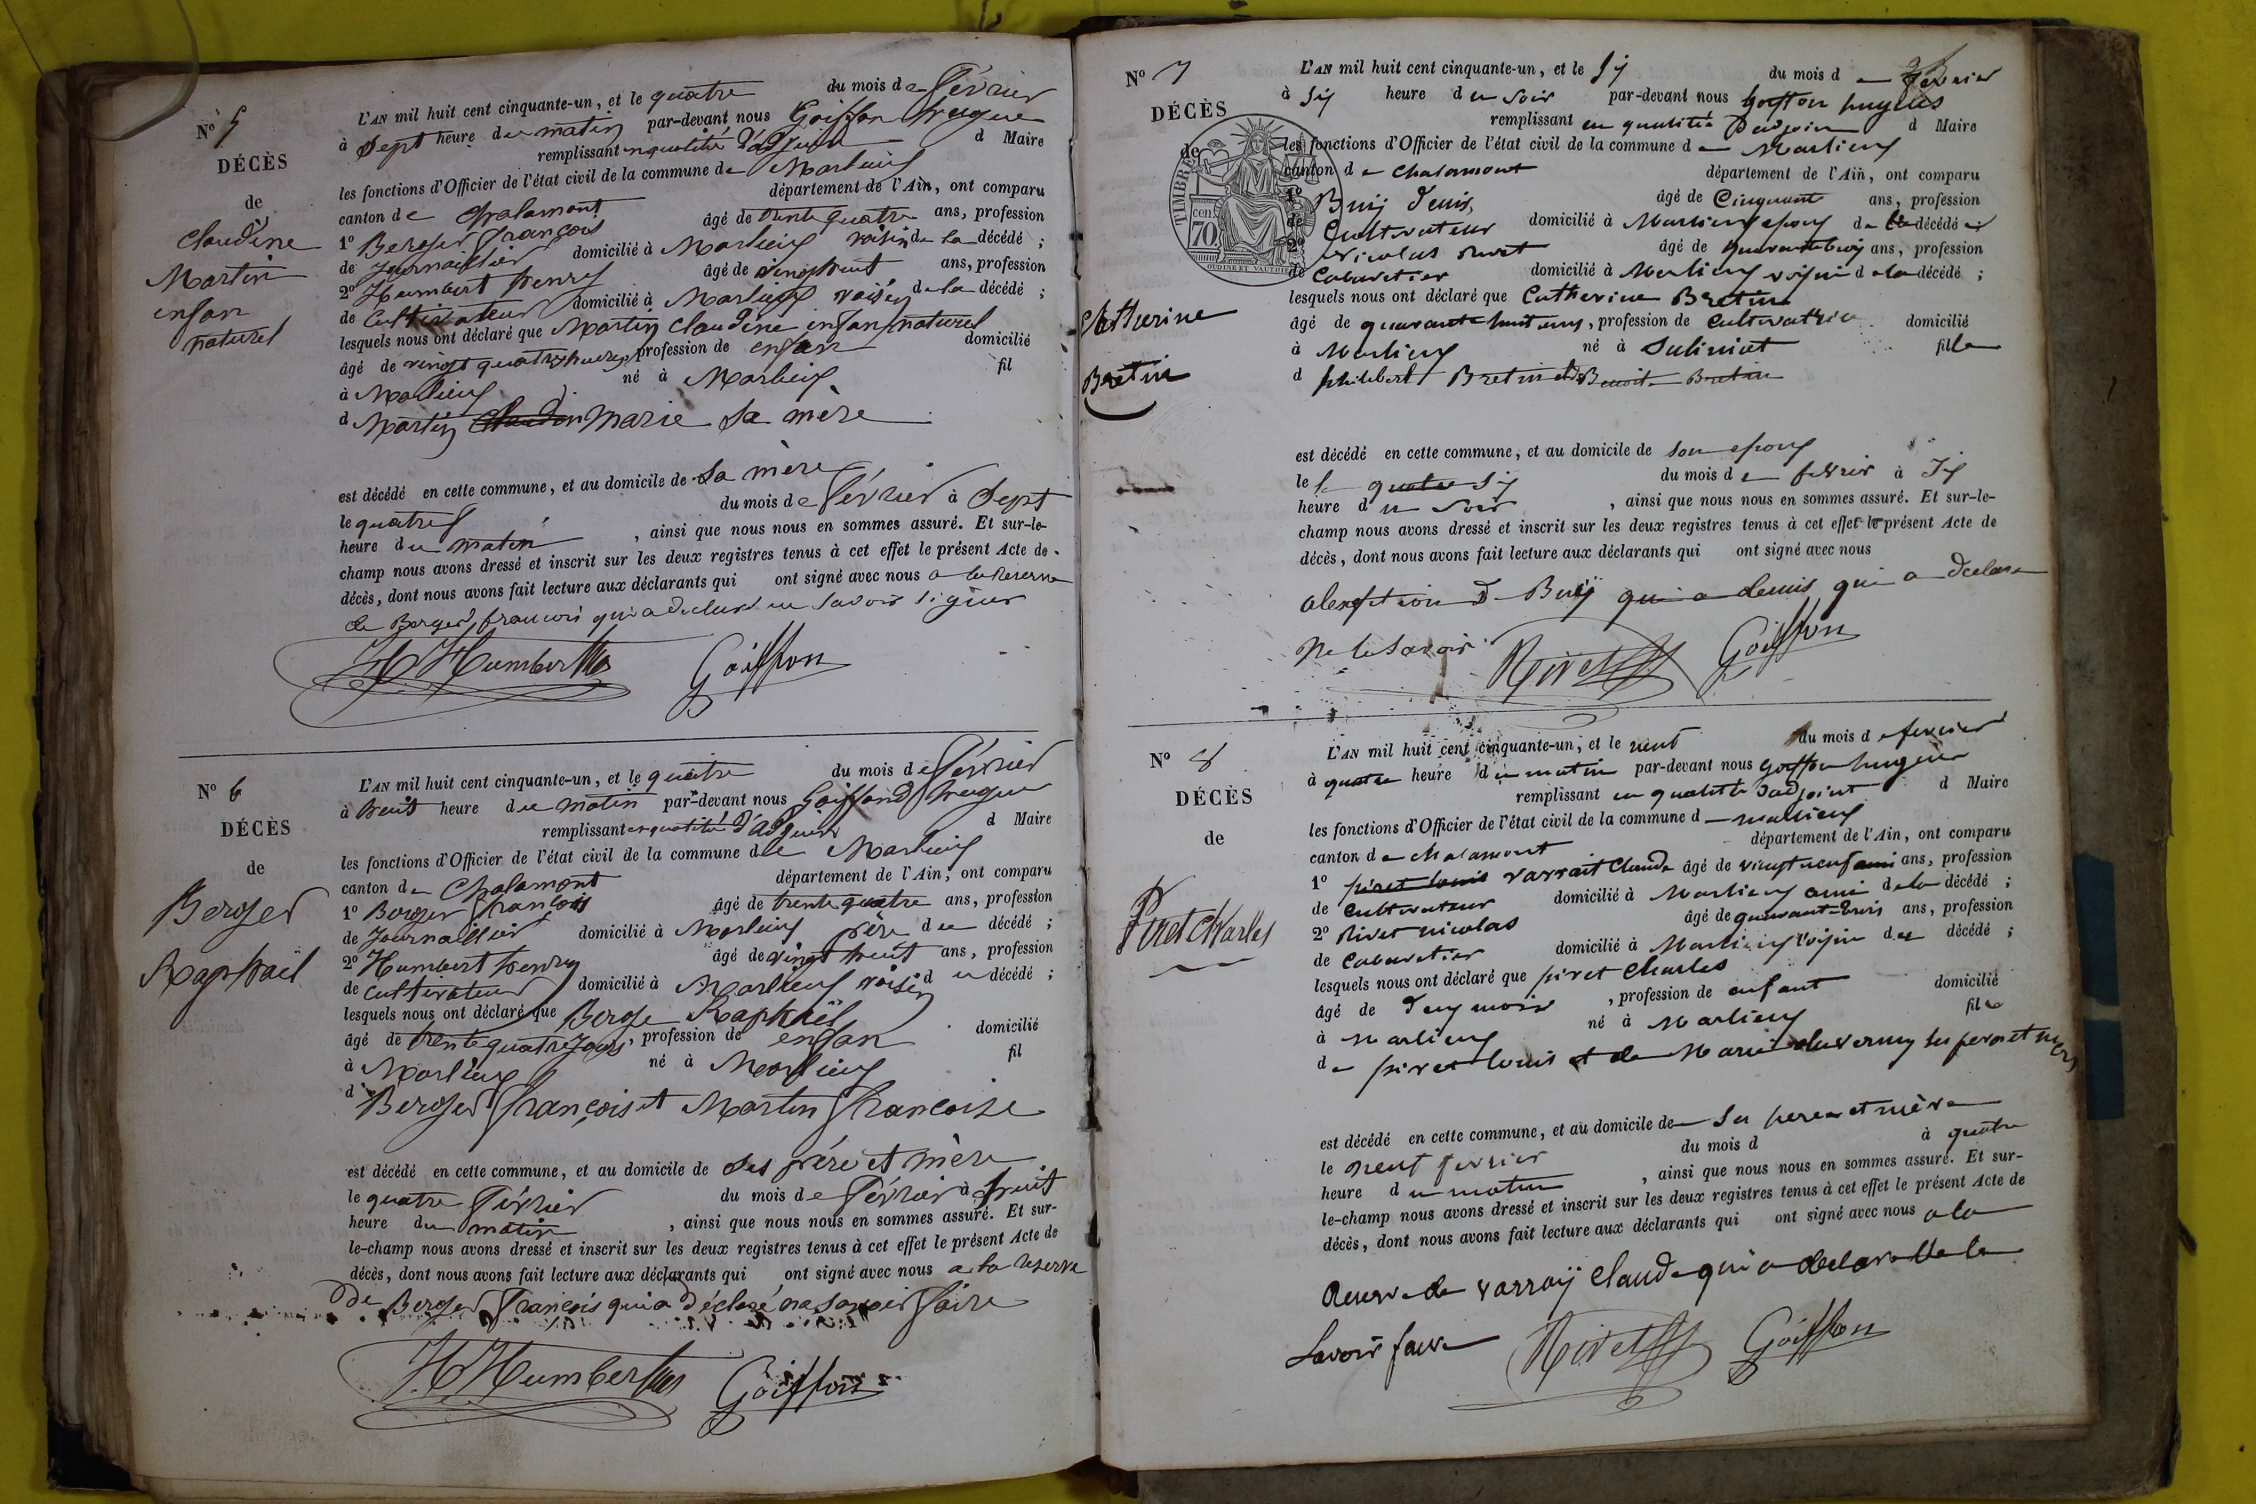 N° 5
DÉCÈS
de
Claudine
Martin
enfan
naturel
L'AN mil huit cent cinquante-un, et le quatre du mois de Février
à Sept heure du matin par-devant nous Goiffon hugue
remplissant enqualité d'adjoint d Maire
les fonctions d'Officier de l'état civil de la commune de Marlieux
canton de Chalamont département de l'Ain, ont comparu
1° Berger François âgé de trente quatre ans, profession
de Journaillier domicilié à Marlieux voisin de la décédé ;
2° Humbert henry âgé de vingt huit ans, profession
de Cultivateur domicilié à Marlieux voisin de la décédé ;
lesquels nous ont déclaré que Martin Claudine enfan naturel
âgé de vingt quatre heures profession de enfan domicilié
à Marlieux né à Marlieux fil
d Martin Marie Sa mère
est décédé en cette commune, et au domicile de Sa mère
le quatre du mois de Février à Sept
heure du matin , ainsi que nous nous en sommes assuré. Et sur-le-
champ nous avons dressé et inscrit sur les deux registres tenus à cet effet le présent Acte de
décès, dont nous avons fait lecture aux déclarants qui ont signé avec nous a la Reserve
de Berger francois qui a declaré ne Savoir Signer
H Humbert Goiffon
N° 6
DÉCÈS
de
Berger
Raphaël
L'AN mil huit cent cinquante-un, et le quatre du mois de Février
à huit heure du matin par-devant nous Goiffond hugue
remplissant enqualité d'adjoint d Maire
les fonctions d'Officier de l'état civil de la commune de Marlieux
canton de Chalamont département de l'Ain, ont comparu
1° Berger François âgé de trente quatre ans, profession
de Journaillier domicilié à Marlieux père du décédé ;
2° Humbert henry âgé de vingt huit ans, profession
de Cultivateur domicilié à Marlieux voisin du décédé ;
lesquels nous ont déclaré que Berge Raphaël
âgé de trente quatre Jours, profession de enfan domicilié
à Marlieux né à Marlieux fil
d Berger François et Martin Francoise
est décédé en cette commune, et au domicile de Ses père et mère
le quatre Février du mois de Février à huit
heure du matin , ainsi que nous nous en sommes assuré. Et sur-
le-champ nous avons dressé et inscrit sur les deux registres tenus à cet effet le présent Acte de
décès, dont nous avons fait lecture aux déclarants qui ont signé avec nous a la reserve
De Berger François qui a déclaré ne Savoir faire
H Humbert Goiffon
N° 7
DÉCÈS
de
TIMBRE
cen
70
OUDINE ET VAUTHIER
Catherine
Bretin
L'AN mil huit cent cinquante-un, et le Six du mois de fevrier
à Six heure du Soir par-devant nous Goiffon hugues
remplissant en qualité d'adjoint d Maire
les fonctions d'Officier de l'état civil de la commune de Marlieux
canton de Chalamont département de l'Ain, ont comparu
1° Buij Denis, âgé de Cinquante ans, profession
de Cultivateur domicilié à Marlieux epoux de la décédé
2° Nicolas Rivet âgé de quarante trois ans, profession
de Cabaretier domicilié à Marlieux voisin de la décédé ;
lesquels nous ont déclaré que Catherine Bretin
âgé de quarante huit ans, profession de Cultivatrice domicilié
à Marlieux né à Sulinat fille
d philibert Bretin et de Benoite Bretin
est décédé en cette commune, et au domicile de Son epoux
le le quatre Six du mois de fevrier à Six
heure du Soir , ainsi que nous nous en sommes assuré. Et sur-le-
champ nous avons dressé et inscrit sur les deux registres tenus à cet effet le présent Acte de
décès, dont nous avons fait lecture aux déclarants qui ont signé avec nous
alexeption D Buij qui a denis qui a declare
Ne le Savoir Rivet Goiffon
N° 8
DÉCÈS
de
Piret Charles
L'AN mil huit cent cinquante-un, et le neuf du mois de fevrier
à quatre heure du matin par-devant nous Goiffon hugue
remplissant en qualité d'adjoint d Maire
les fonctions d'Officier de l'état civil de la commune d marlieux
canton de Chalamont département de l'Ain, ont comparu
1° piret louis varrait Claude âgé de vingt neuf ans, profession
de Cultivateur domicilié à Marlieux ami de la décédé ;
2° Rivet nicolas âgé de quarante-trois ans, profession
de Cabaretier domicilié à Marlieux voisin du décédé ;
lesquels nous ont déclaré que piret Charles
âgé de deux mois , profession de enfant domicilié
à Marlieux né à Marlieux fils
de piret louis et de Marie duvernay Ses pere et mere
est décédé en cette commune, et au domicile de Ses pere et mère
le neuf fevrier du mois d à quatre
heure du matin , ainsi que nous nous en sommes assuré. Et sur-
le-champ nous avons dressé et inscrit sur les deux registres tenus à cet effet le présent Acte de
décès, dont nous avons fait lecture aux déclarants qui ont signé avec nous a la
Reserve de varraij Claude qui a declare Ne le
Savoir faire Rivet Goiffon